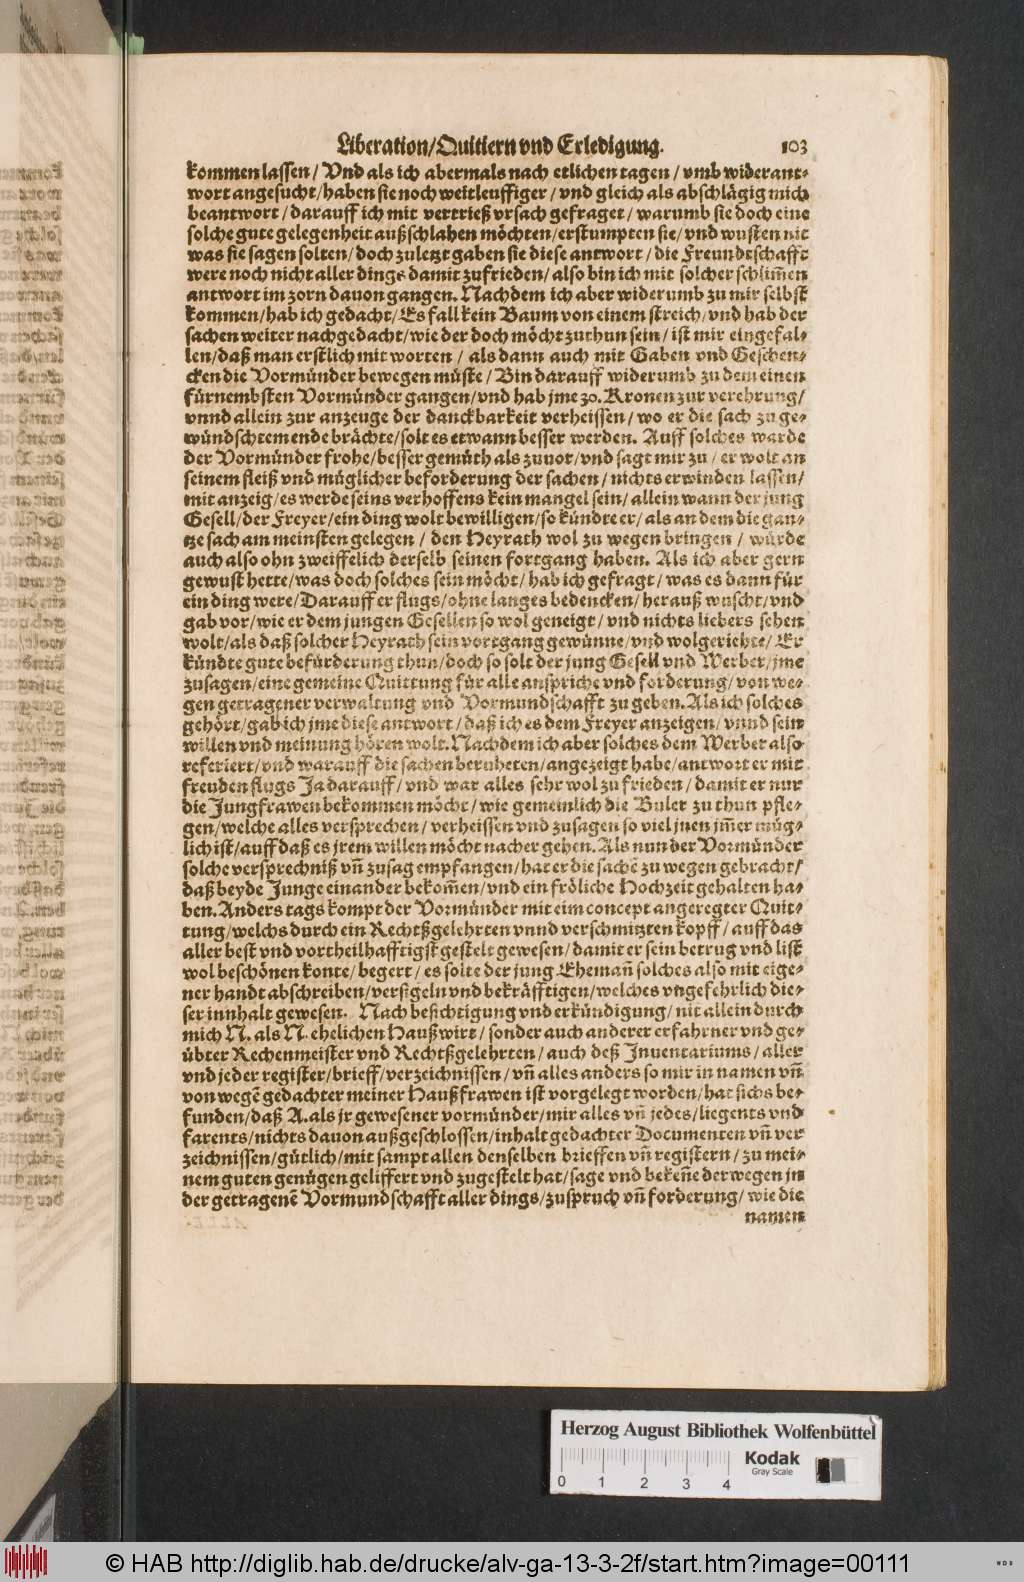 Liberation/Quitiern vnd Erledigung. 103
kommen lassen/ Vnd als ich abermals nach etlichen tagen/ vmb widerant-
wort angesucht/haben sie noch weitleuffiger/ vnd gleich als abschlägig mich
beantwort/darauff ich mit vertrieß vrsach gefraget/ warumb sie doch eine
solche gute gelegenheit außschlahen möchten/erstumpten sie/vnd wusten nit
was sie sagen solten/doch zuletzt gaben sie diese antwort/ die Freundtschafft
were noch nicht aller dings damit zufrieden/also bin ich mit solcher schlim̃en
antwort im zorn dauon gangen. Nachdem ich aber widerumb zu mir selbst
kommen/hab ich gedacht/Es fall kein Baum von einem streich/vnd hab der
sachen weiter nachgedacht/wie der doch möcht zuthun sein/ist mir eingefal-
len/daß man erstlich mit worten/ als dann auch mit Gaben vnd Geschen-
cken die Vormünder bewegen müste/Bin darauff widerumb zu dem einen
fürnembsten Vormünder gangen/vnd hab jme 30. Kronen zur verehrung/
vnnd allein zur anzeuge der danckbarkeit verheissen/ wo er die sach zu ge-
wündschtem ende brächte/solt es etwann besser werden. Auff solches warde
der Vormünder frohe/besser gemüth als zuuor/vnd sagt mir zu/ er wolt an
seinem fleiß vnd müglicher beforderung der sachen/nichts erwinden lassen/
mit anzeig/es werde seins verhoffens kein mangel sein/allein wann der jung
Gesell/der Freyer/ein ding wolt bewilligen/so kündte er/als an dem die gan-
tze sach am meinsten gelegen/ den Heyrath wol zu wegen bringen/ würde
auch also ohn zweiffelich derselb seinen fortgang haben. Als ich aber gern
gewust hette/was doch solches sein möcht/hab ich gefragt/was es dann für
ein ding were/Darauff er flugs/ohne langes bedencken/herauß wuscht/vnd
gab vor/wie er dem jungen Gesellen so wol geneigt/vnd nichts liebers sehen
wolt/als daß solcher Heyrath sein vortgang gewünne/vnd wolgeriehte/Er
kündte gute befürderung thun/doch so solt der jung Gesell vnd Werber/jme
zusagen/eine gemeine Quittung für alle ansprüche vnd forderung/von we-
gen getragener verwaltung vnd Vormundschafft zu geben. Als ich solches
gehört/gab ich jme diese antwort/daß ich es dem Freyer anzeigen/vnnd sein
willen vnd meinung hören wolt. Nachdem ich aber solches dem Werber also
referiert/vnd warauff die sachen beruheten/angezeigt habe/antwort er mit
freuden flugs Ja darauff/vnd war alles sehr wol zu frieden/damit er nur
die Jungfrawen bekommen möcht/wie gemeinlich die Buler zu thun pfle-
gen/welche alles versprechen/verheissen vnd zusagen so viel jnen jm̃er müg-
lich ist/auff daß es jrem willen möcht nacher gehen. Als nun der Vormünder
solche versprechniß vñ zusag empfangen/hat er die sachẽ zu wegen gebracht/
daß beyde Junge einander bekom̃en/vnd ein fröliche Hochzeit gehalten ha-
ben. Anders tags kompt der Vormünder mit eim concept angeregter Quit-
tung/welchs durch ein Rechtßgelehrten vnnd verschmitzten kopff/auff das
aller best vnd vortheilhafftigst gestelt gewesen/damit er sein betrug vnd list
wol beschönen konte/begert/es solte der jung Ehemañ solches also mit eige-
ner handt abschreiben/versigeln vnd bekräfftigen/welches vngefehrlich die-
ser innhalt gewesen. Nach besichtigung vnd erkündigung/nit allein durch
mich N. als N. ehelichen Haußwirt/sonder auch anderer erfahrner vnd ge-
übter Rechenmeister vnd Rechtßgelehrten/auch deß Inuentariums/aller
vnd jeder register/brieff/verzeichnissen/vñ alles anders so mir in namen vñ
von wegẽ gedachter meiner Haußfrawen ist vorgelegt worden/hat sichs be-
funden/daß A. als jr gewesener vormünder/mir alles vñ jedes/liegents vnd
farents/nichts dauon außgeschlossen/inhalt gedachter Documenten vñ ver
zeichnissen/gütlich/mit sampt allen denselben brieffen vñ registern/zu mei-
nem guten genügen geliffert vnd zugestelt hat/sage vnd bekeñe derwegen jn
der getragenẽ Vormundschafft aller dings/zuspruch vñ forderung/wie die
namen
Herzog August Bibliothek Wolfenbüttel
Kodak
Gray Scale
0 1 2 3 4
© HAB http://diglib.hab.de/drucke/alv-ga-13-3-2f/start.htm?image=00111